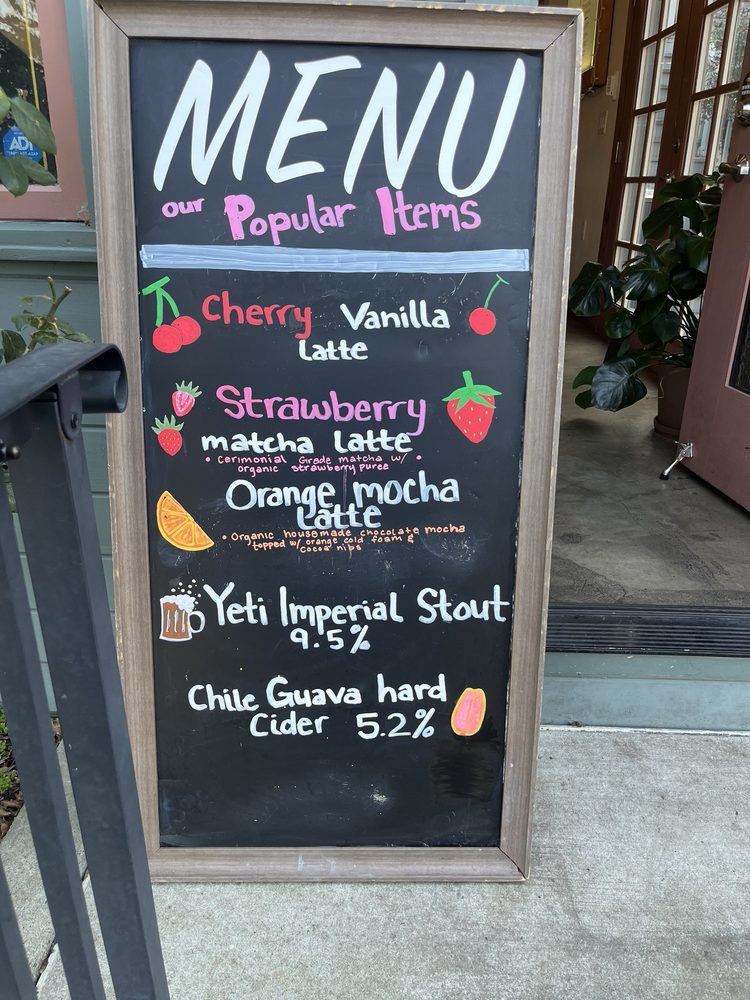 MENU
our Popular Items
Cherry Vanilla
Latte
Strawberry
matcha latte
• Cerimonial Grade matcha w/ •
organic strawberry puree
Orange mocha
Latte
• Organic housemade chocolate mocha
topped w/ orange cold foam &
cocoa nibs
Yeti Imperial Stout
9.5%
Chile Guava hard
Cider 5.2%